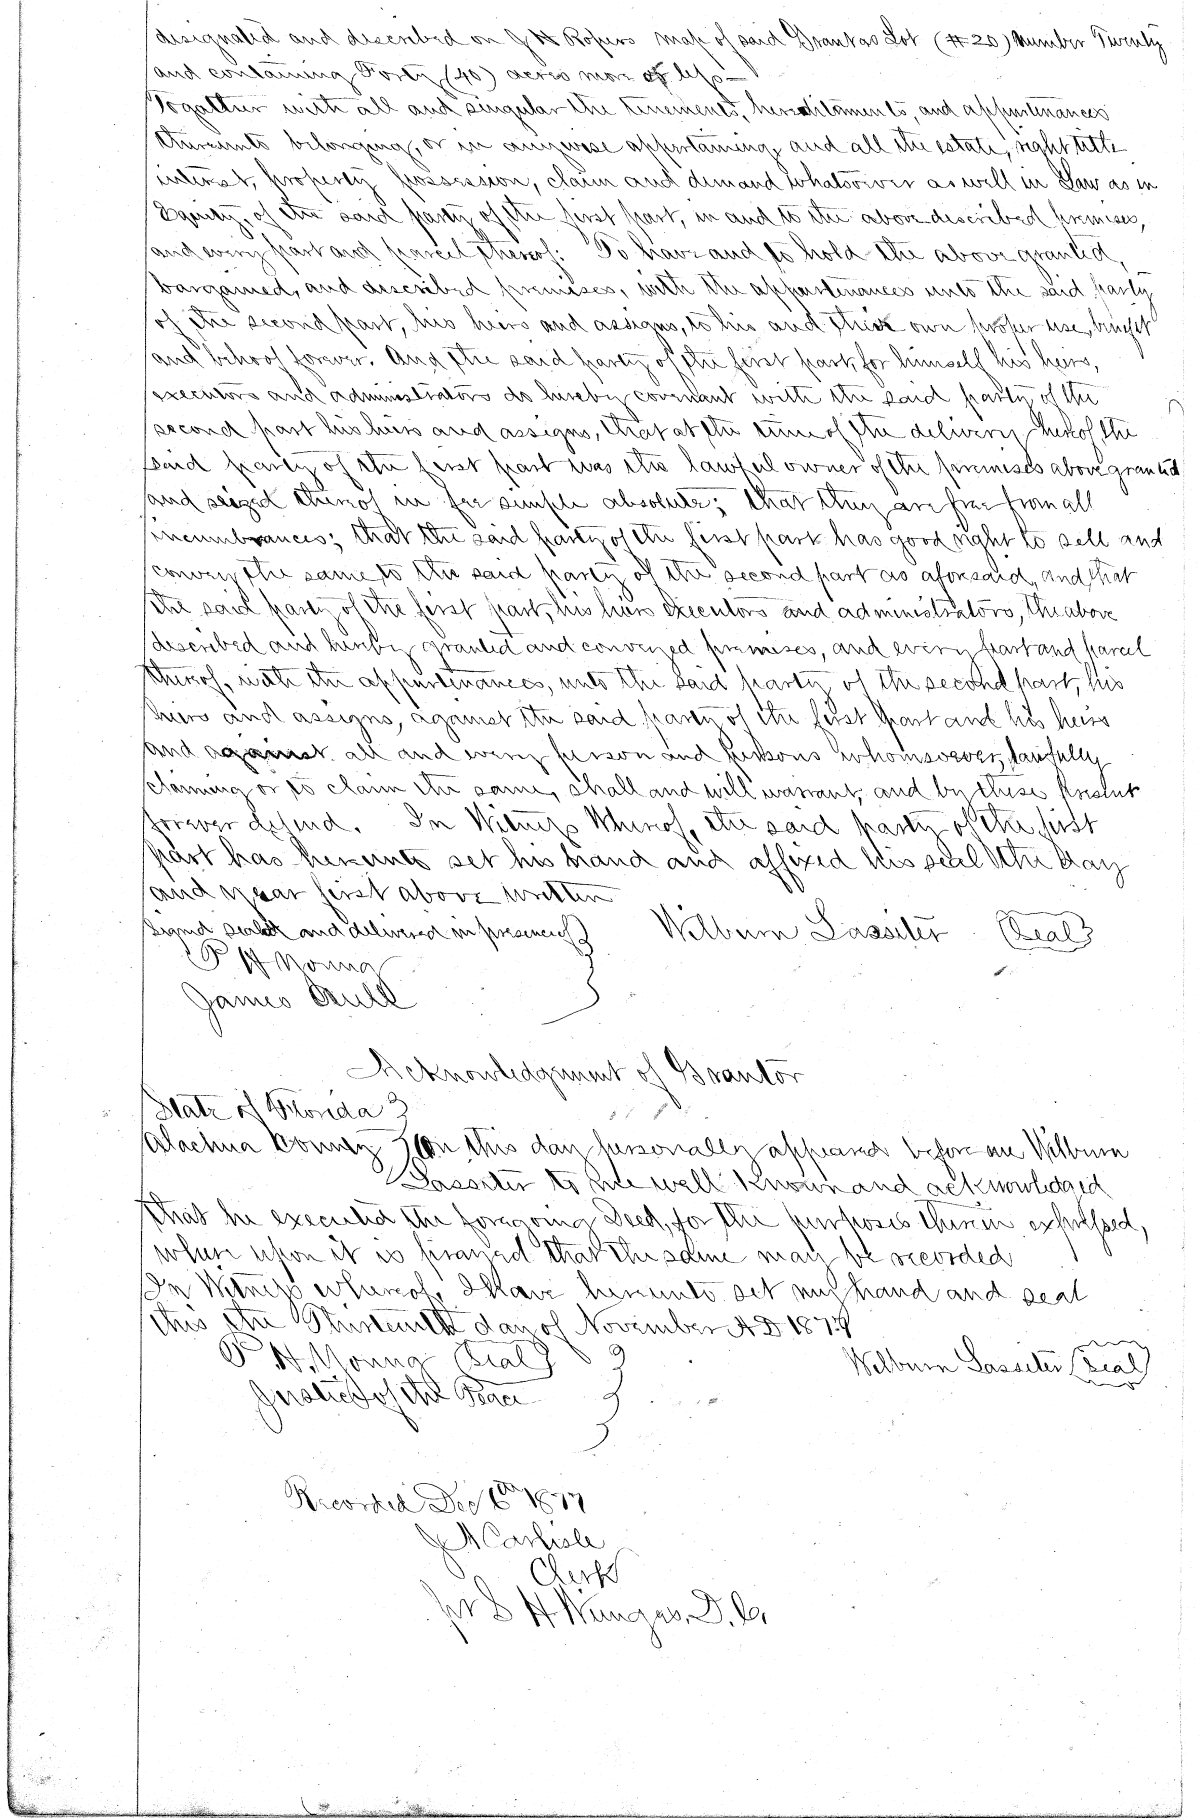 designated and described on J H Ropers map of said Grant as Lot (#20) number Twenty
and containing Forty (40) acres more or less—
Togather with all and singular the tenements, hereditaments, and appurtenances
thereunto belonging, or in anywise appertaining, and all the estate, right title
interest, property possession, claim and demand whatsoever as well in Law as in
Equity, of the said party of the first part, in and to the above described premises,
and every part and parcel thereof: To have and to hold the above granted,
bargained, and described premises, with the appurtenances unto the said party
of the second part, his heirs and assigns, to his and their own proper use, benefit
and behoof forever. And the said party of the first part, for himself his heirs,
executors and administrators do hereby covenant with the said party of the
second part his heirs and assigns, that at the time of the delivery hereof the
said party of the first part was the lawful owner of the premises above granted
and seized thereof in fee simple absolute; that they are free from all
incumbrances; that the said party of the first part has good right to sell and
convey the same to the said party of the second part as aforesaid, and that
the said party of the first part, his heirs executors and administrators, the above
described and hereby granted and conveyed premises, and every part and parcel
thereof, with the appurtenances, unto the said party of the second part, his
heirs and assigns, against the said party of the first part and his heirs
and against all and every person and persons whomsoever, lawfully
claiming or to claim the same, shall and will warrant, and by these present
forever defend. In Witness Whereof, the said party of the first
part has hereunto set his hand and affixed his seal the day
and year first above written
Signed sealed and delivered in presence of Wilburn Lasseter (Seal)
P H Young
James
Acknowledgment of Grantor
State of Florida
Alachua County On this day personally appeared before me Wilburn
Lasseter to me well known and acknowledged
that he executed the foregoing Deed, for the purposes therein expressed,
where upon it is prayed that the same may be recorded
In Witness whereof, I have hereunto set my hand and seal
this the Thirteenth day of November A D 1877
P H. Young (Seal) Wilburn Lasseter (Seal)
Justice of the Peace
Recorded Dec 6th 1877
J A Carlisle
Clerk
pr S H D. C.